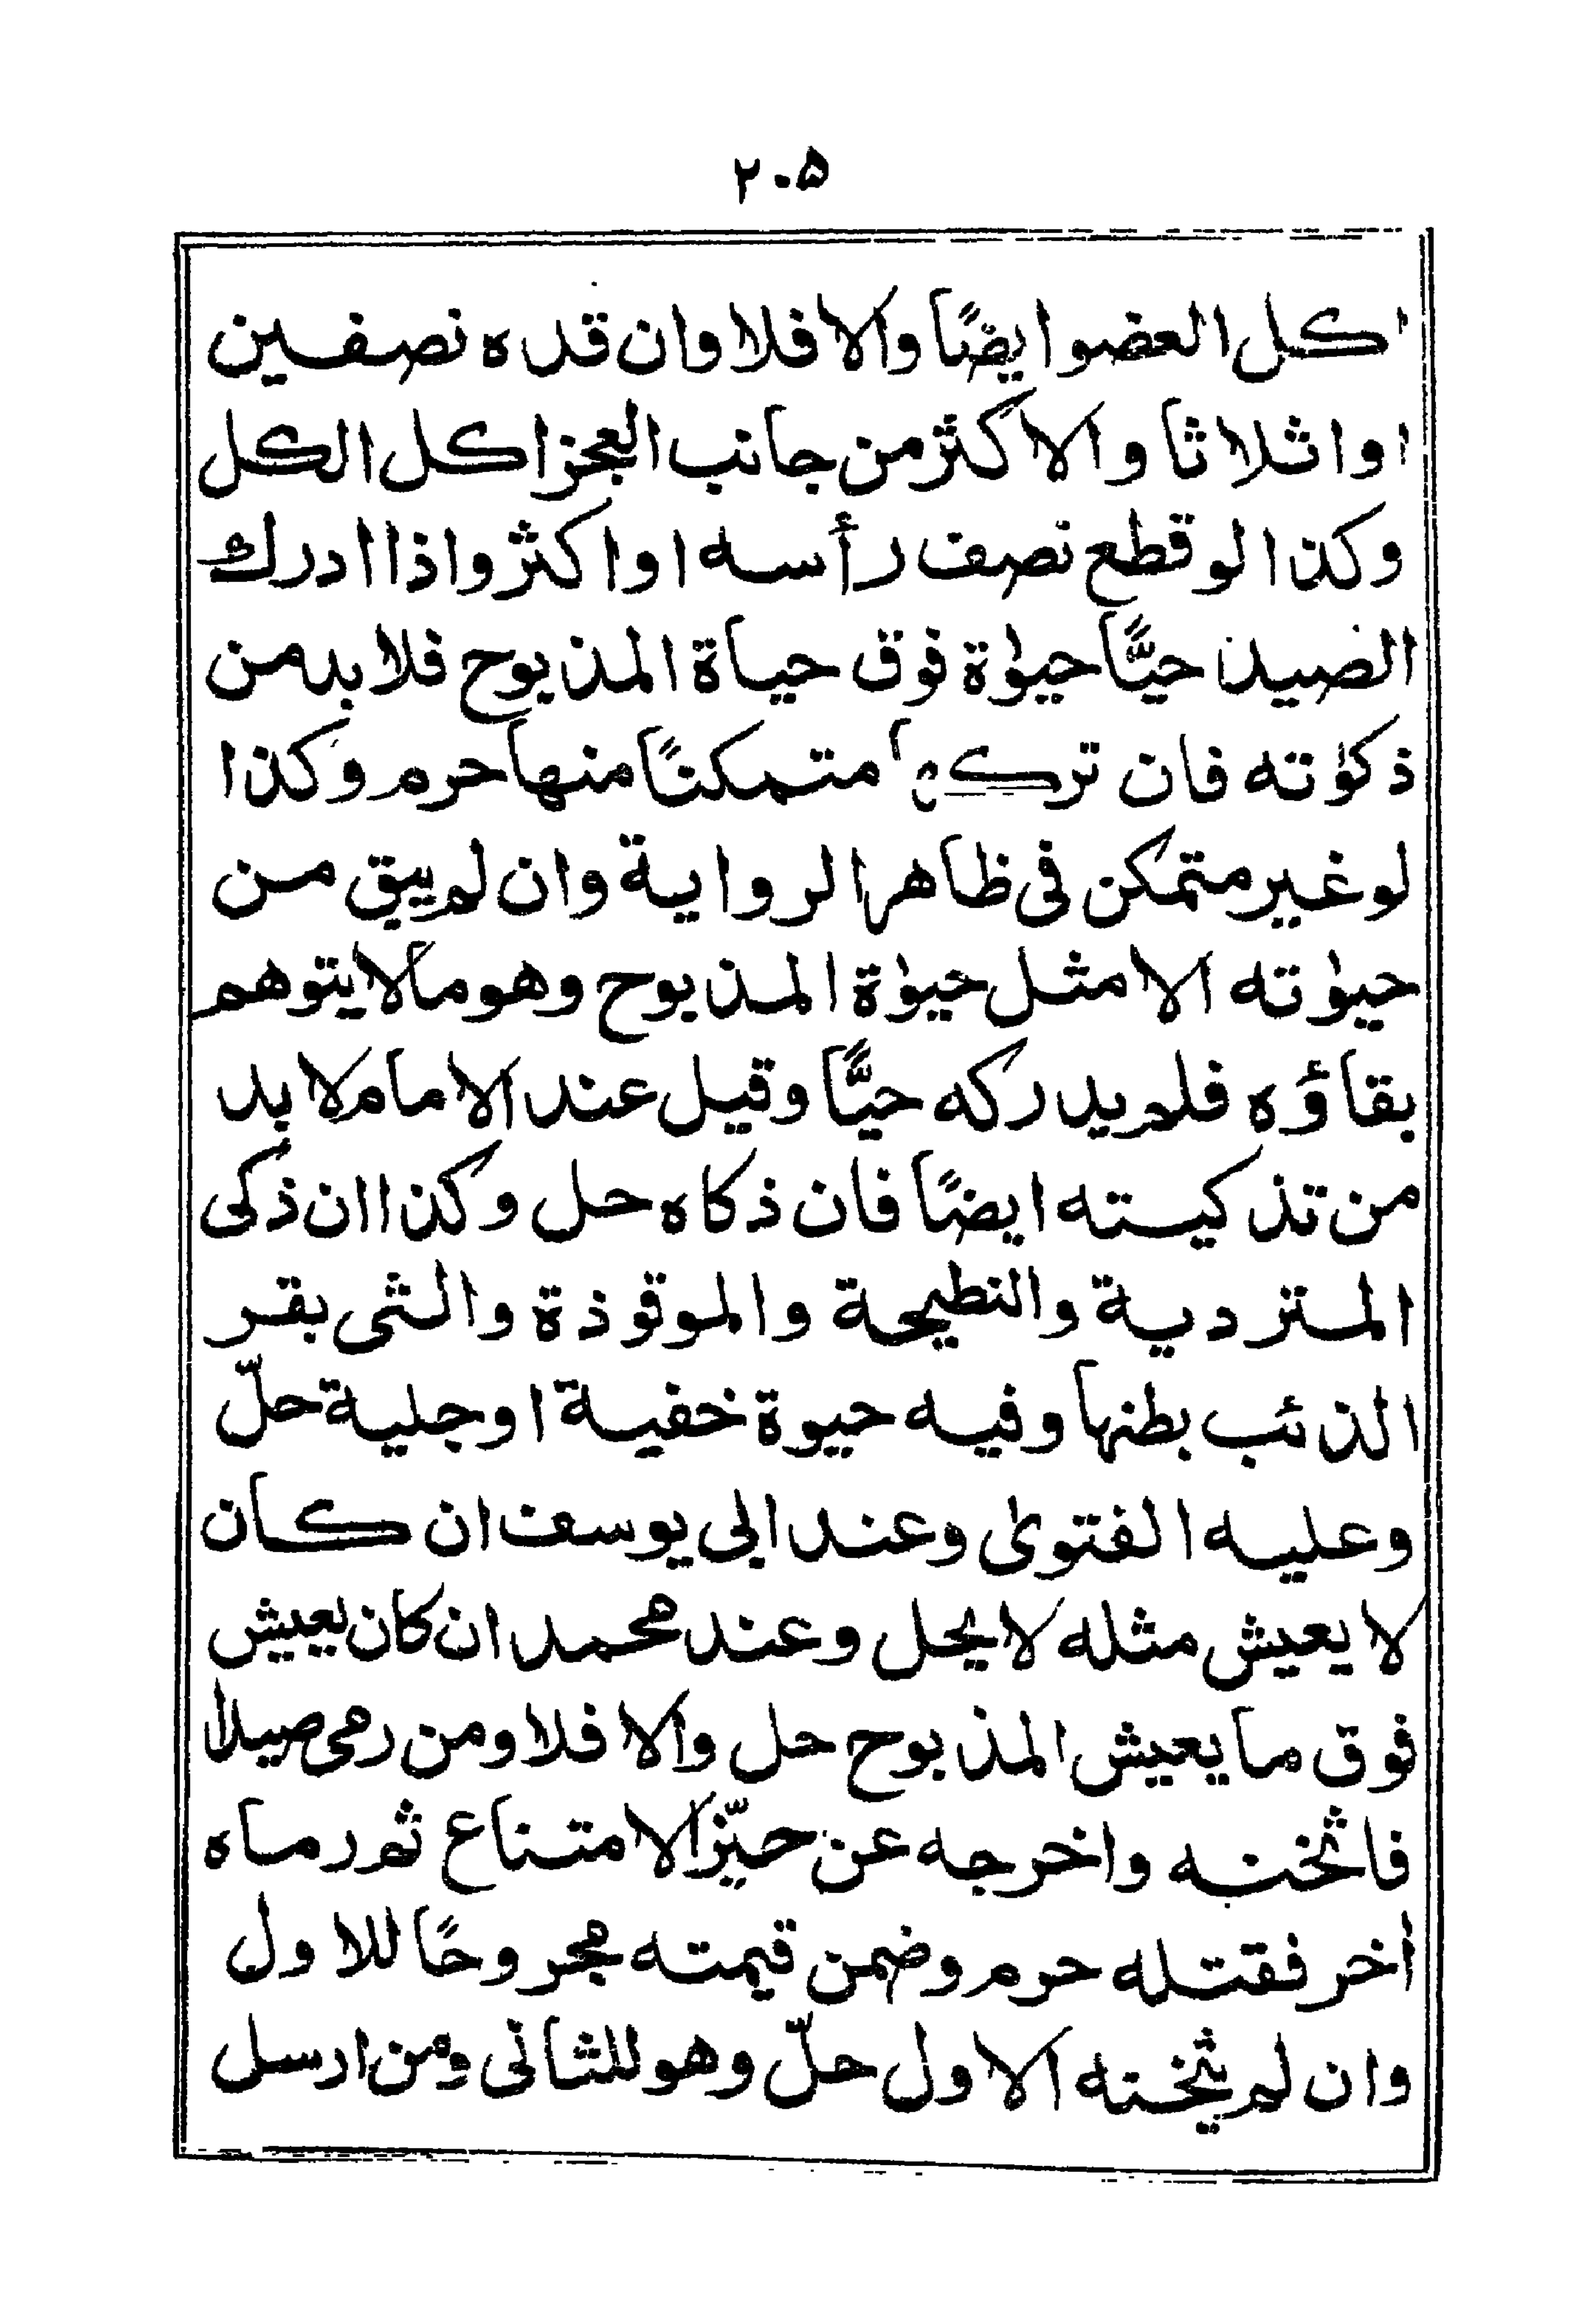 ۲۰۵
اكل العضو ايضًا والا فلا وان قده نصفين
او اثلاثا والاكثر من جانب العجز اكل الكل
وكذا لو قطع نصف رأسه او اكثر واذا ادرك
الصيد حيًّا حيٰوة فوق حياة المذبوح فلا بد من
ذكٰوته فان تركها متمكنًا منها حرم وكذا
لو غير متمكن فى ظاهر الرواية وان لم يبق من
حيٰوته الا مثل حيٰوة المذبوح وهو ما لا يتوهم
بقاؤه فلم يدركه حيًّا وقيل عند الامام لا بد
من تذكيته ايضًا فان ذكاه حل وكذا ان ذكى
المتردية والنطيحة والموقوذة والتى بقر
الذئب بطنها وفيه حيوة خفية او جلية حلّ
وعليه الفتوىٰ وعند ابى يوسف ان كان
لا يعيش مثله لا يحل وعند محمد ان كان يعيش
فوق ما يعيش المذبوح حل والا فلا ومن رمى صيدا
فاثخنه واخرجه عن حيّز الامتناع ثم رماه
اٰخر فقتله حرم وضمن قيمته مجروحًا للاول
وان لم يثخنه الاول حلّ وهو للثانى ومن ارسل